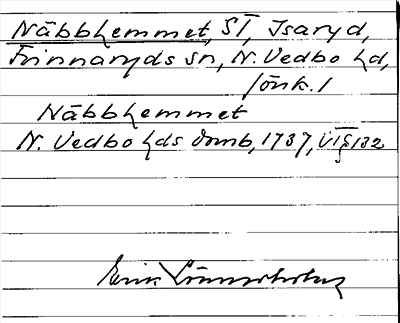 Näbbhemmet, St, Isaryd,
Frinnaryds sn, N. Vedbo hd,
Jönk. l
Näbbhemmet
N. Vedbo hds domb, 1737, VI § 132
Erik